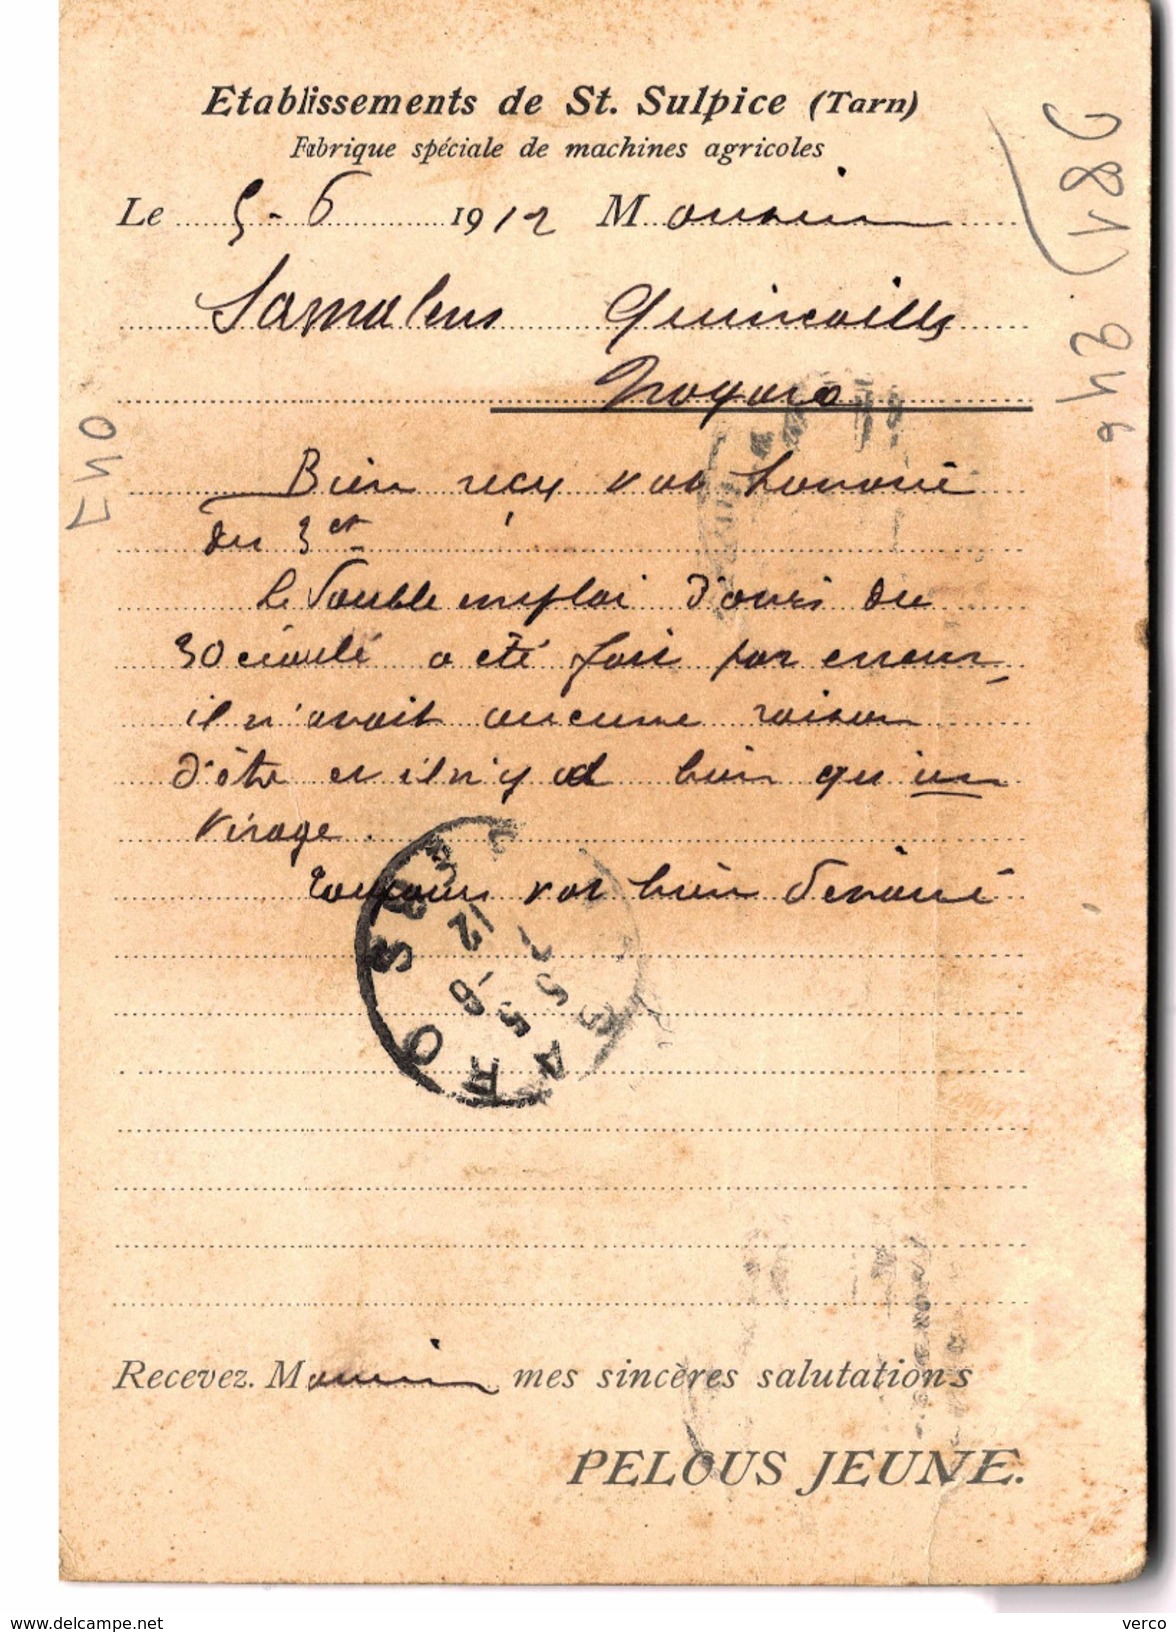 Etablissements de St. Sulpice (Tarn)
Fabrique spéciale de machines agricoles
Le 5-6 1912 Monsieur
Samalens Quincaills
Nogaro
Bien reçu votre honorée
du 3 ct
Le double emploi d'avis du
30 écoulé a été fait par erreur,
il n'avait aucune raison
d'être et il n'y a bien qu'un
virage.
Toujours votre bien dévoué
NOGARO
GERS
5 5
-6
12
Recevez. Monsieur mes sincères salutations
PELOUS JEUNE.
(81)
E40
delcampe.net
verco